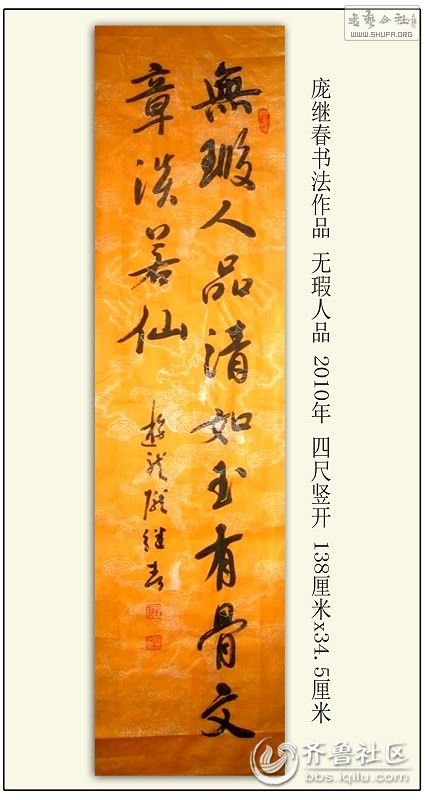 書藝公社
WWW.SHUFA.ORG
庞继春书法作品 无瑕人品 2010年 四尺竖开 138厘米x34.5厘米
無瑕人品清如玉有骨文
章淡若仙
遊龍龐継春
齐鲁社区
bbs.iqilu.com